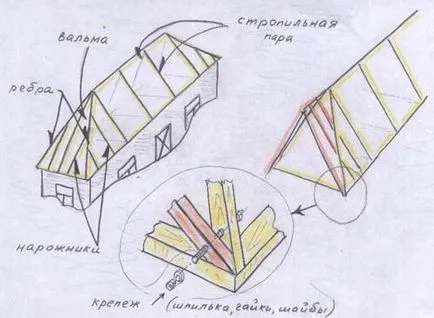 вальма
стропильная
пара
ребра
нарожники
крепеж
(шпилька, гайки, шайбы)